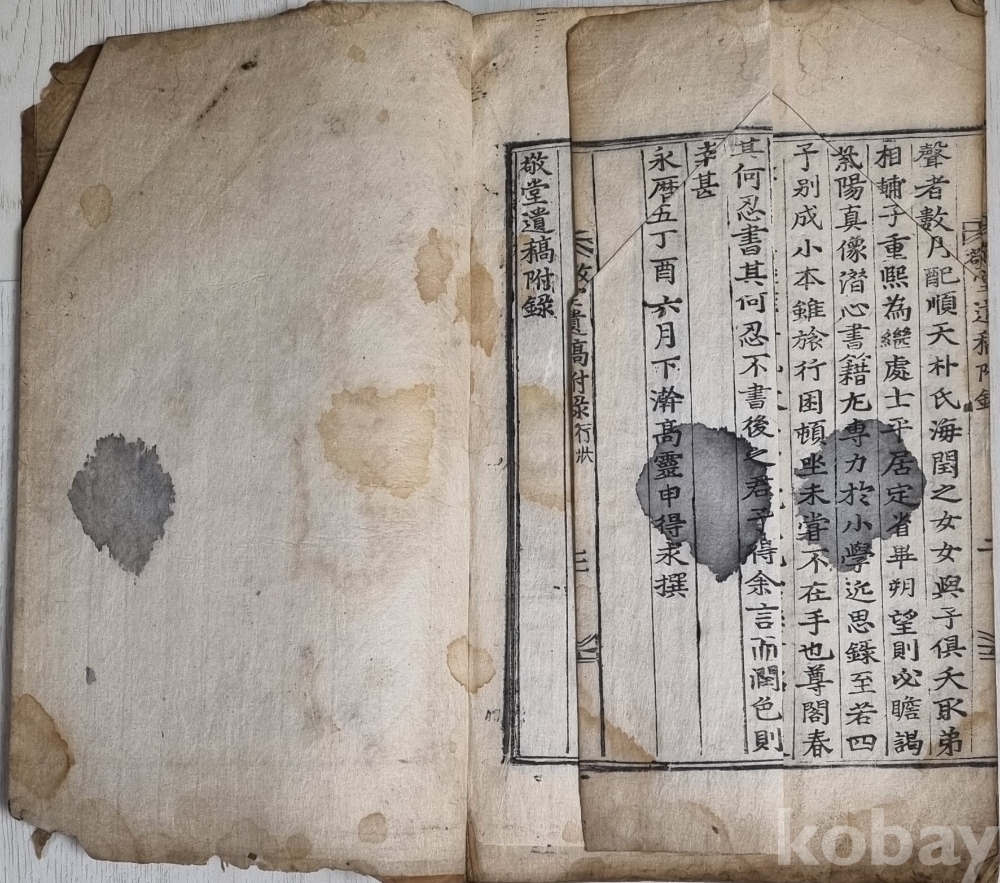 敬堂遺稿附錄 二
聲者數月配順天朴氏海閏之女女與子俱夭取弟
相輔子重熙為繼處士平居定省畢朔望則必瞻謁
紫陽真像潛心書籍尤專力於小學近思錄至若四
子別成小本雖旅行困頓坐未嘗不在手也尊閤春
其何忍書其何忍不書後之君子得余言而潤色則
幸甚
永曆五丁酉六月下澣高靈申得求撰
敬堂遺稿附錄 行狀 三
敬堂遺稿附錄
kobay